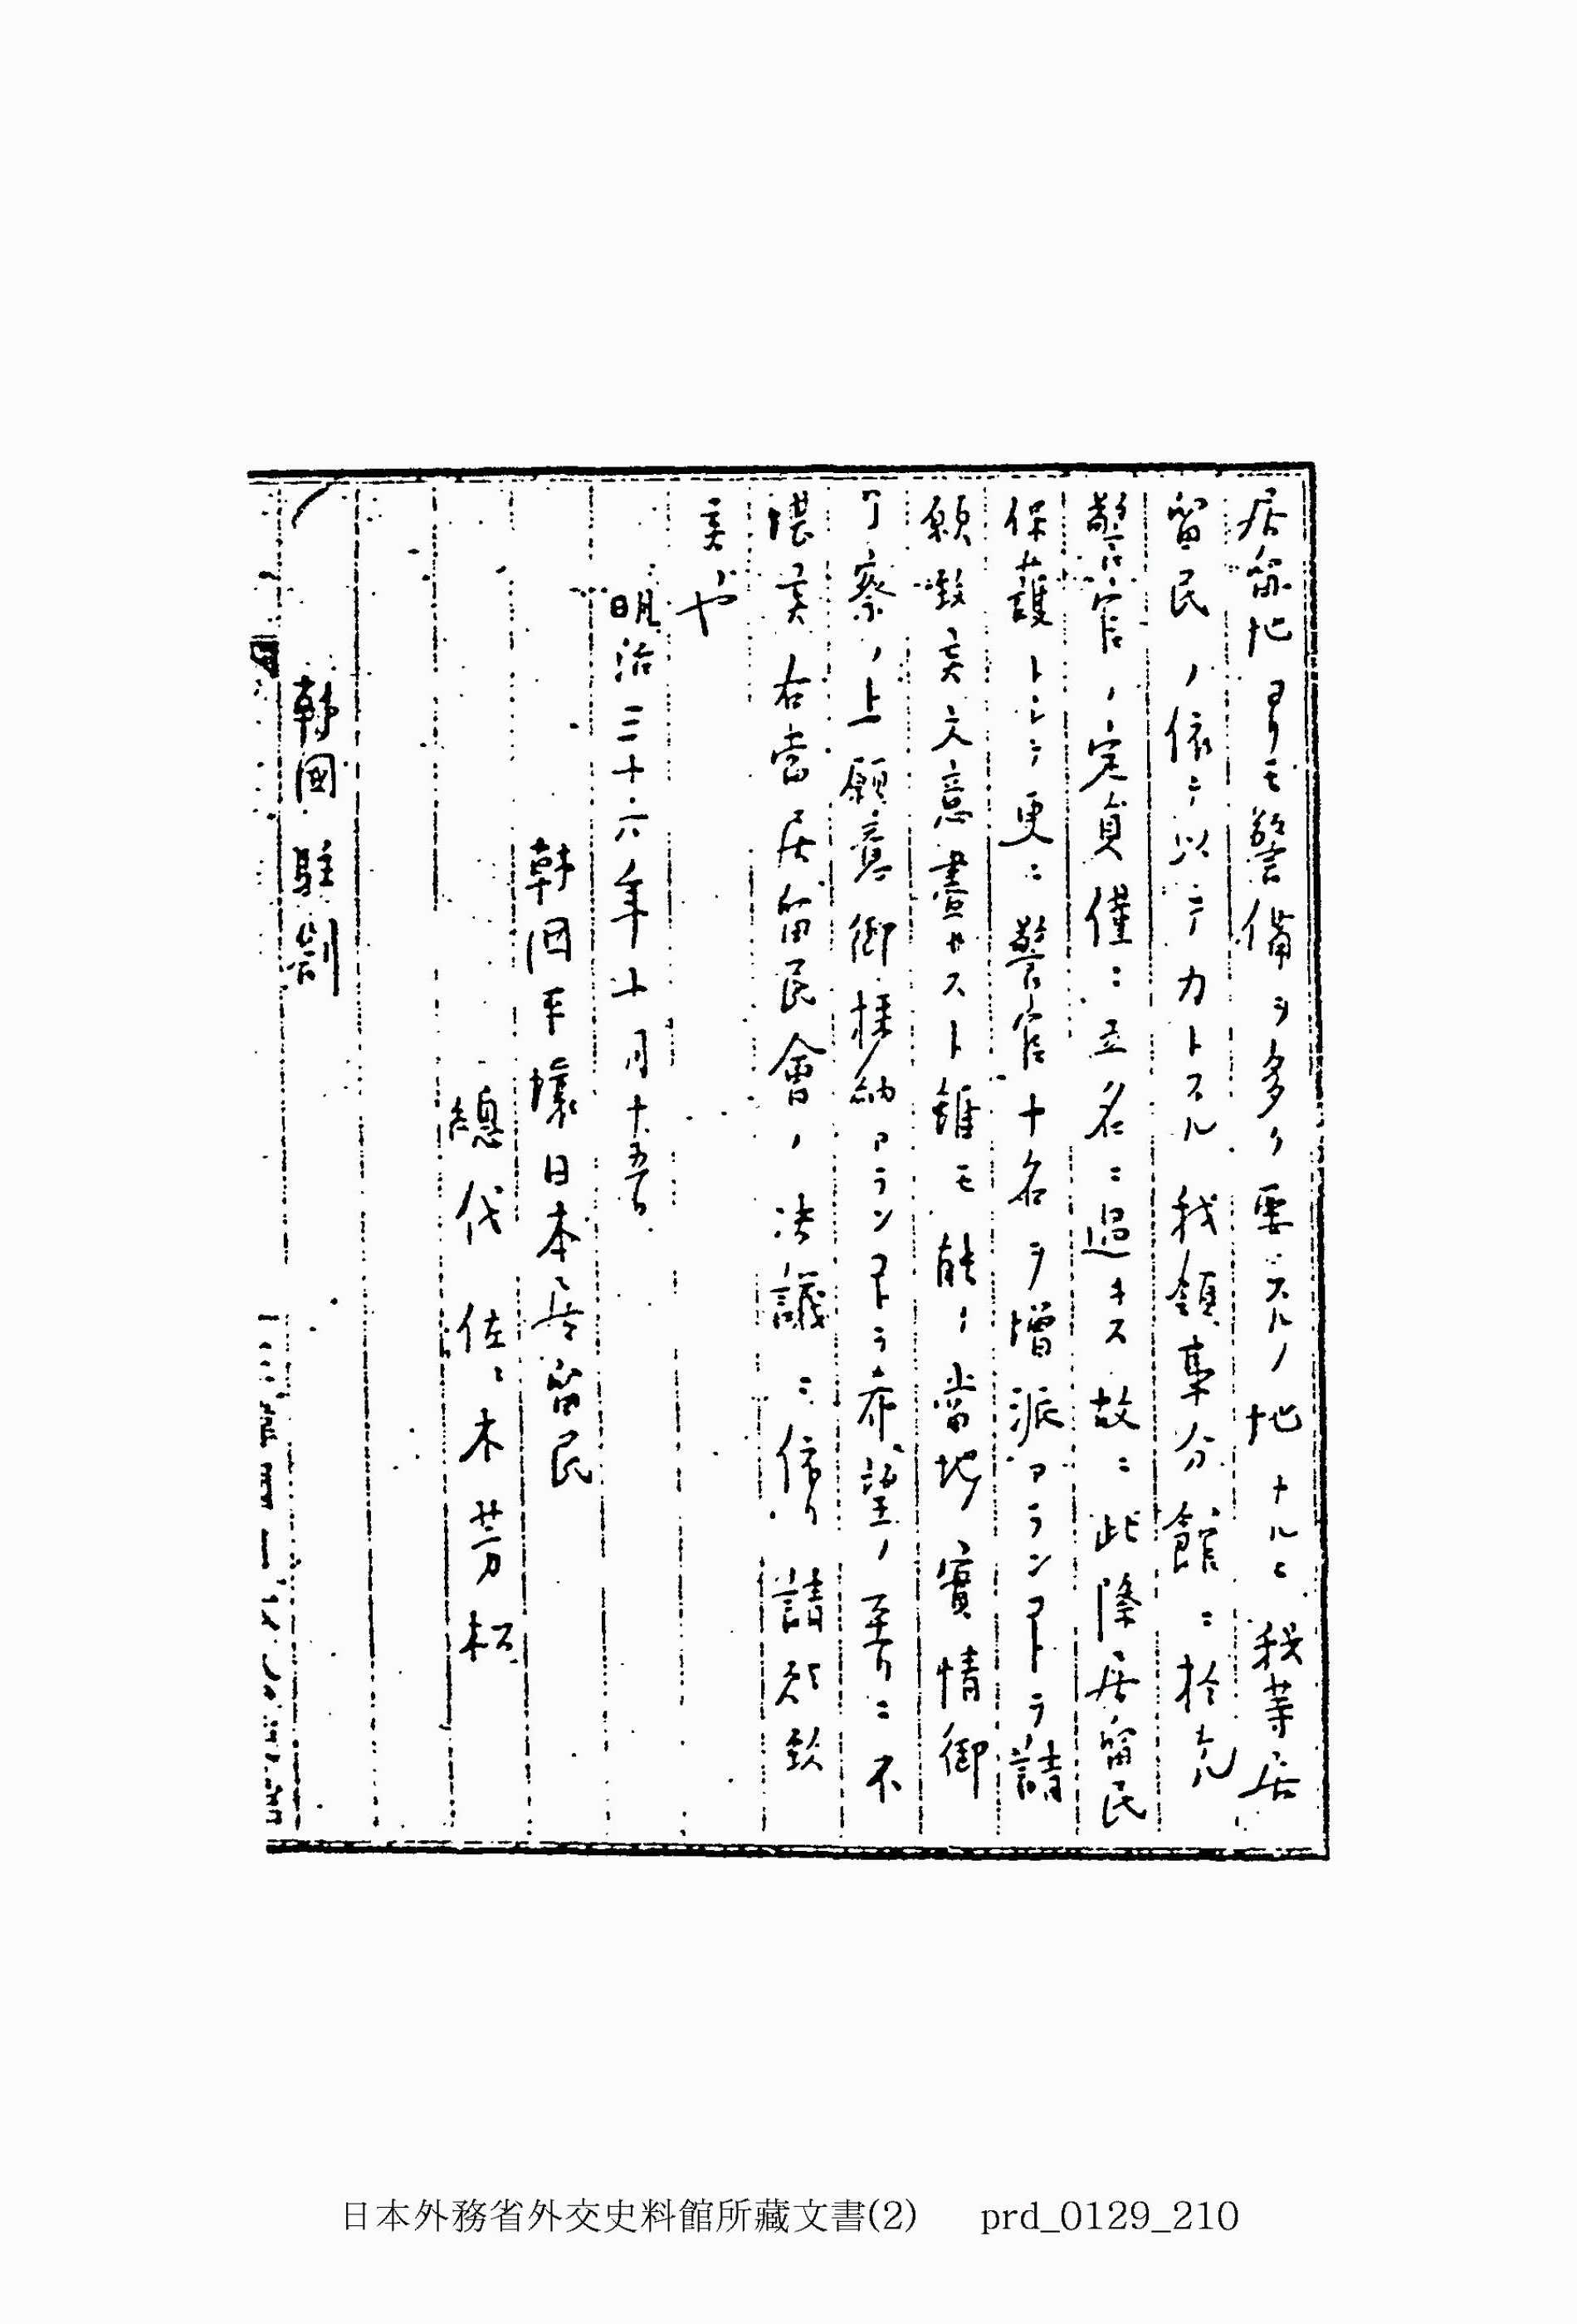 居留地ヨリモ警備ヲ多ク要スルノ地ナルニ我等居
留民ノ依テ以テ力トスル我領事分館ニ於ル
警官ノ定員僅ニ五名ニ過キス故ニ此際居留民
保護トシテ更ニ警官十名ヲ増派アランヿトヲ請
願致候文意盡サスト雖モ能ク當地ノ實情御
了察ノ上願意御採納アランヿトヲ希望ノ至リニ不
堪候右當居留民會ノ決議ニ依リ請願致
候也
明治三十六年十月十五日
韓国平壌日本居留民
總代 佐々木芳松
韓國駐劄
日本外務省外交史料館所藏文書(2) prd_0129_210